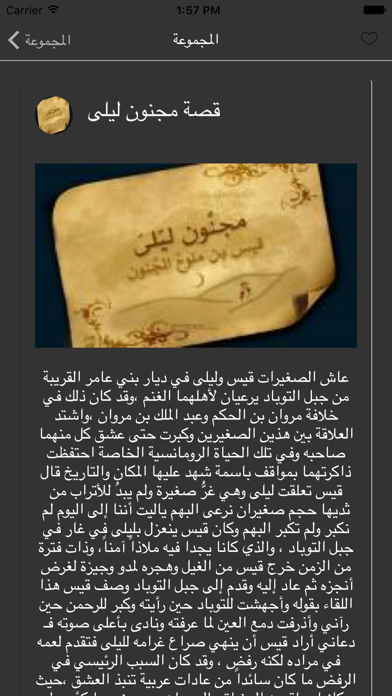 Carrier 1:57 PM
المجموعة المجموعة
قصة مجنون ليلى
مجنُون ليْلىَ
قيس بن ملوح المجنون
عاش الصغيرات قيس وليلى في ديار بني عامر القريبة
من جبل التوباد يرعيان لأهلهما الغنم ,وقد كان ذلك في
خلافة مروان بن الحكم وعبد الملك بن مروان ,واشتد
العلاقة بين هذين الصغيرين وكبرت حتى عشق كل منهما
صاحبه وفي تلك الحياة الرومانسية الخاصة احتفظت
ذاكرتهما بمواقف باسمة شهد عليها المكان والتاريخ قال
قيس تعلقت ليلى وهي غرُّ صغيرة ولم يبدُ للأتراب من
ثديها حجم صغيران نرعى البهم ياليت أننا إلى اليوم لم
نكبر ولم تكبر البهم وكان قيس ينعزل بليلى في غار في
جبل التوباد , والذي كانا يجدا فيه ملاذاً آمناً, وذات فترة
من الزمن خرج قيس من الغيل وهجره لمدو وجيزة لغرض
أنجزه ثم عاد إليه وقدم إلى جبل التوباد وصف قيس هذا
اللقاء بقوله وأجهشت للتوباد حين رأيته وكبر للرحمن حين
رآني وأذرفت دمع العين لما عرفته ونادى بأعلى صوته فـ
دعاني أراد قيس أن ينهي صراع غرامه لليلى فتقدم لعمه
في مراده لكنه رفض , وقد كان السبب الرئيسي في
الرفض ما كان سائداً من عادات عربية تنبذ العشق ,حيث